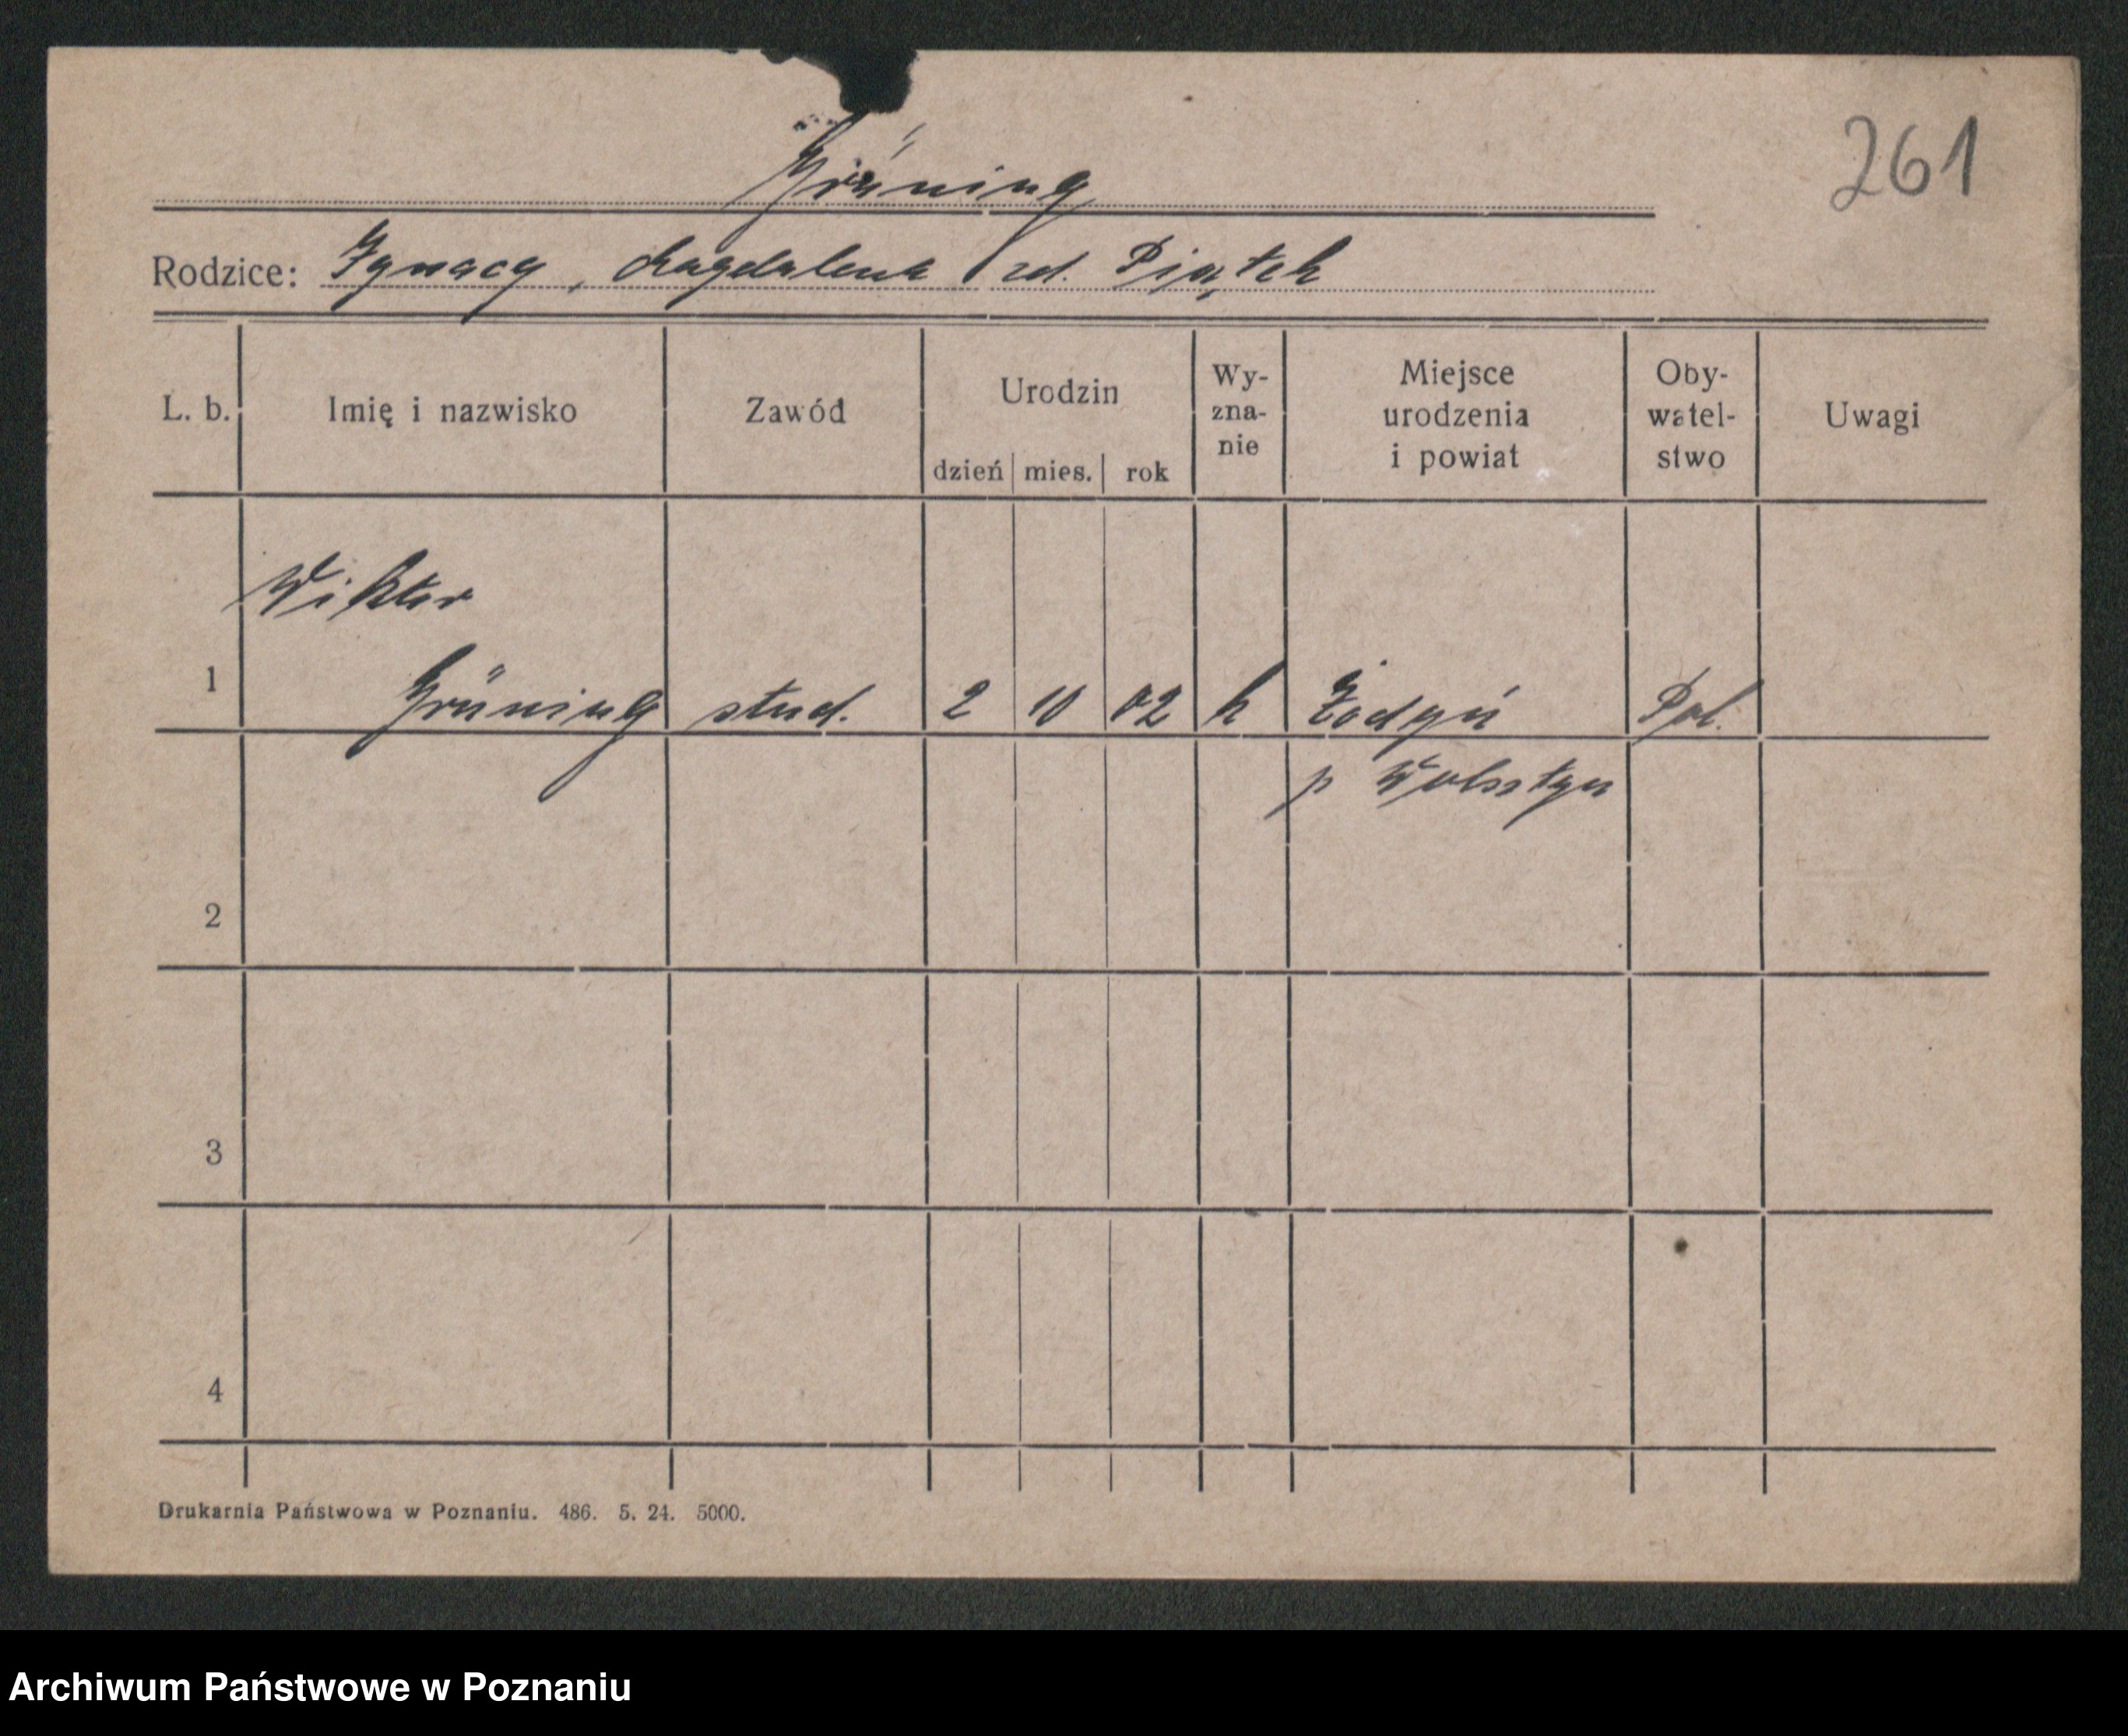 261
Grüning
Rodzice: Ignacy, Magdalena zd. Piątek
L. b. Imię i nazwisko Zawód Urodzin dzień mies. rok Wy-zna-nie Miejsce urodzenia i powiat Oby-watel-stwo Uwagi
Wiktor
1 Grüning stud. 2 10 02 k Żodyń Pol.
p Wolsztyn
2
3
4
Drukarnia Państwowa w Poznaniu. 486. 5. 24. 5000.
Archiwum Państwowe w Poznaniu